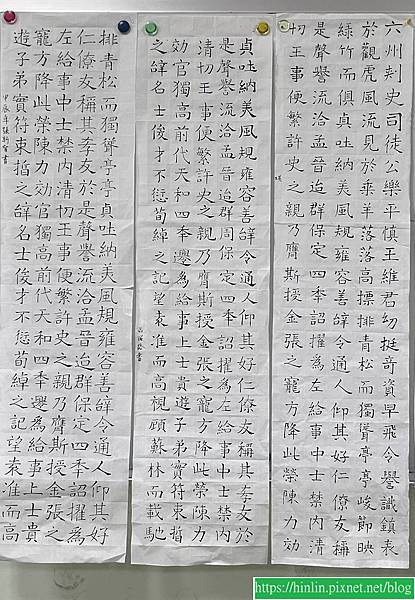 六州刺史司徒公樂平慎王維君幼挺奇資早飛令譽識表
於觀虎風流見於乘羊落落高標排青松而獨聳亭亭峻節映
綠竹而俱貞吐納美風規雍容善辭令通人仰其好仁僚友稱
是聲譽流洽孟晉迨群保定四季詔擢為左給事中士禁內清
切王事便繁許史之親乃膺斯授金張之寵方降此榮陳力効
貞吐納美風規雍容善辭令通人仰其好仁僚友稱其孝友於
是聲譽流洽孟晉迨群周保定四季詔擢為左給事中士禁內
清切王事便繁許史之親乃膺斯授金張之寵方降此榮陳力
効官獨高前代天和四季遷為給事上士貴遊子弟實符束指
之辞名士俊才不愆荀綽之記望袁淮而高視顧蘇林而載馳
排青松而獨聳亭亭貞吐納美風規雍容善辭令通人仰其好
仁僚友稱其孝友於是聲譽流洽孟晉迨群保定四季詔擢為
左給事中士禁內清切王事便繁許史之親乃膺斯授金張之
寵方降此榮陳力効官獨高前代天和四季遷為給事上士貴
遊子弟實符束指之辞名士俊才不愆荀綽之記望袁淮而高
甲辰年張書
https://hinlin.pixnet.net/blog